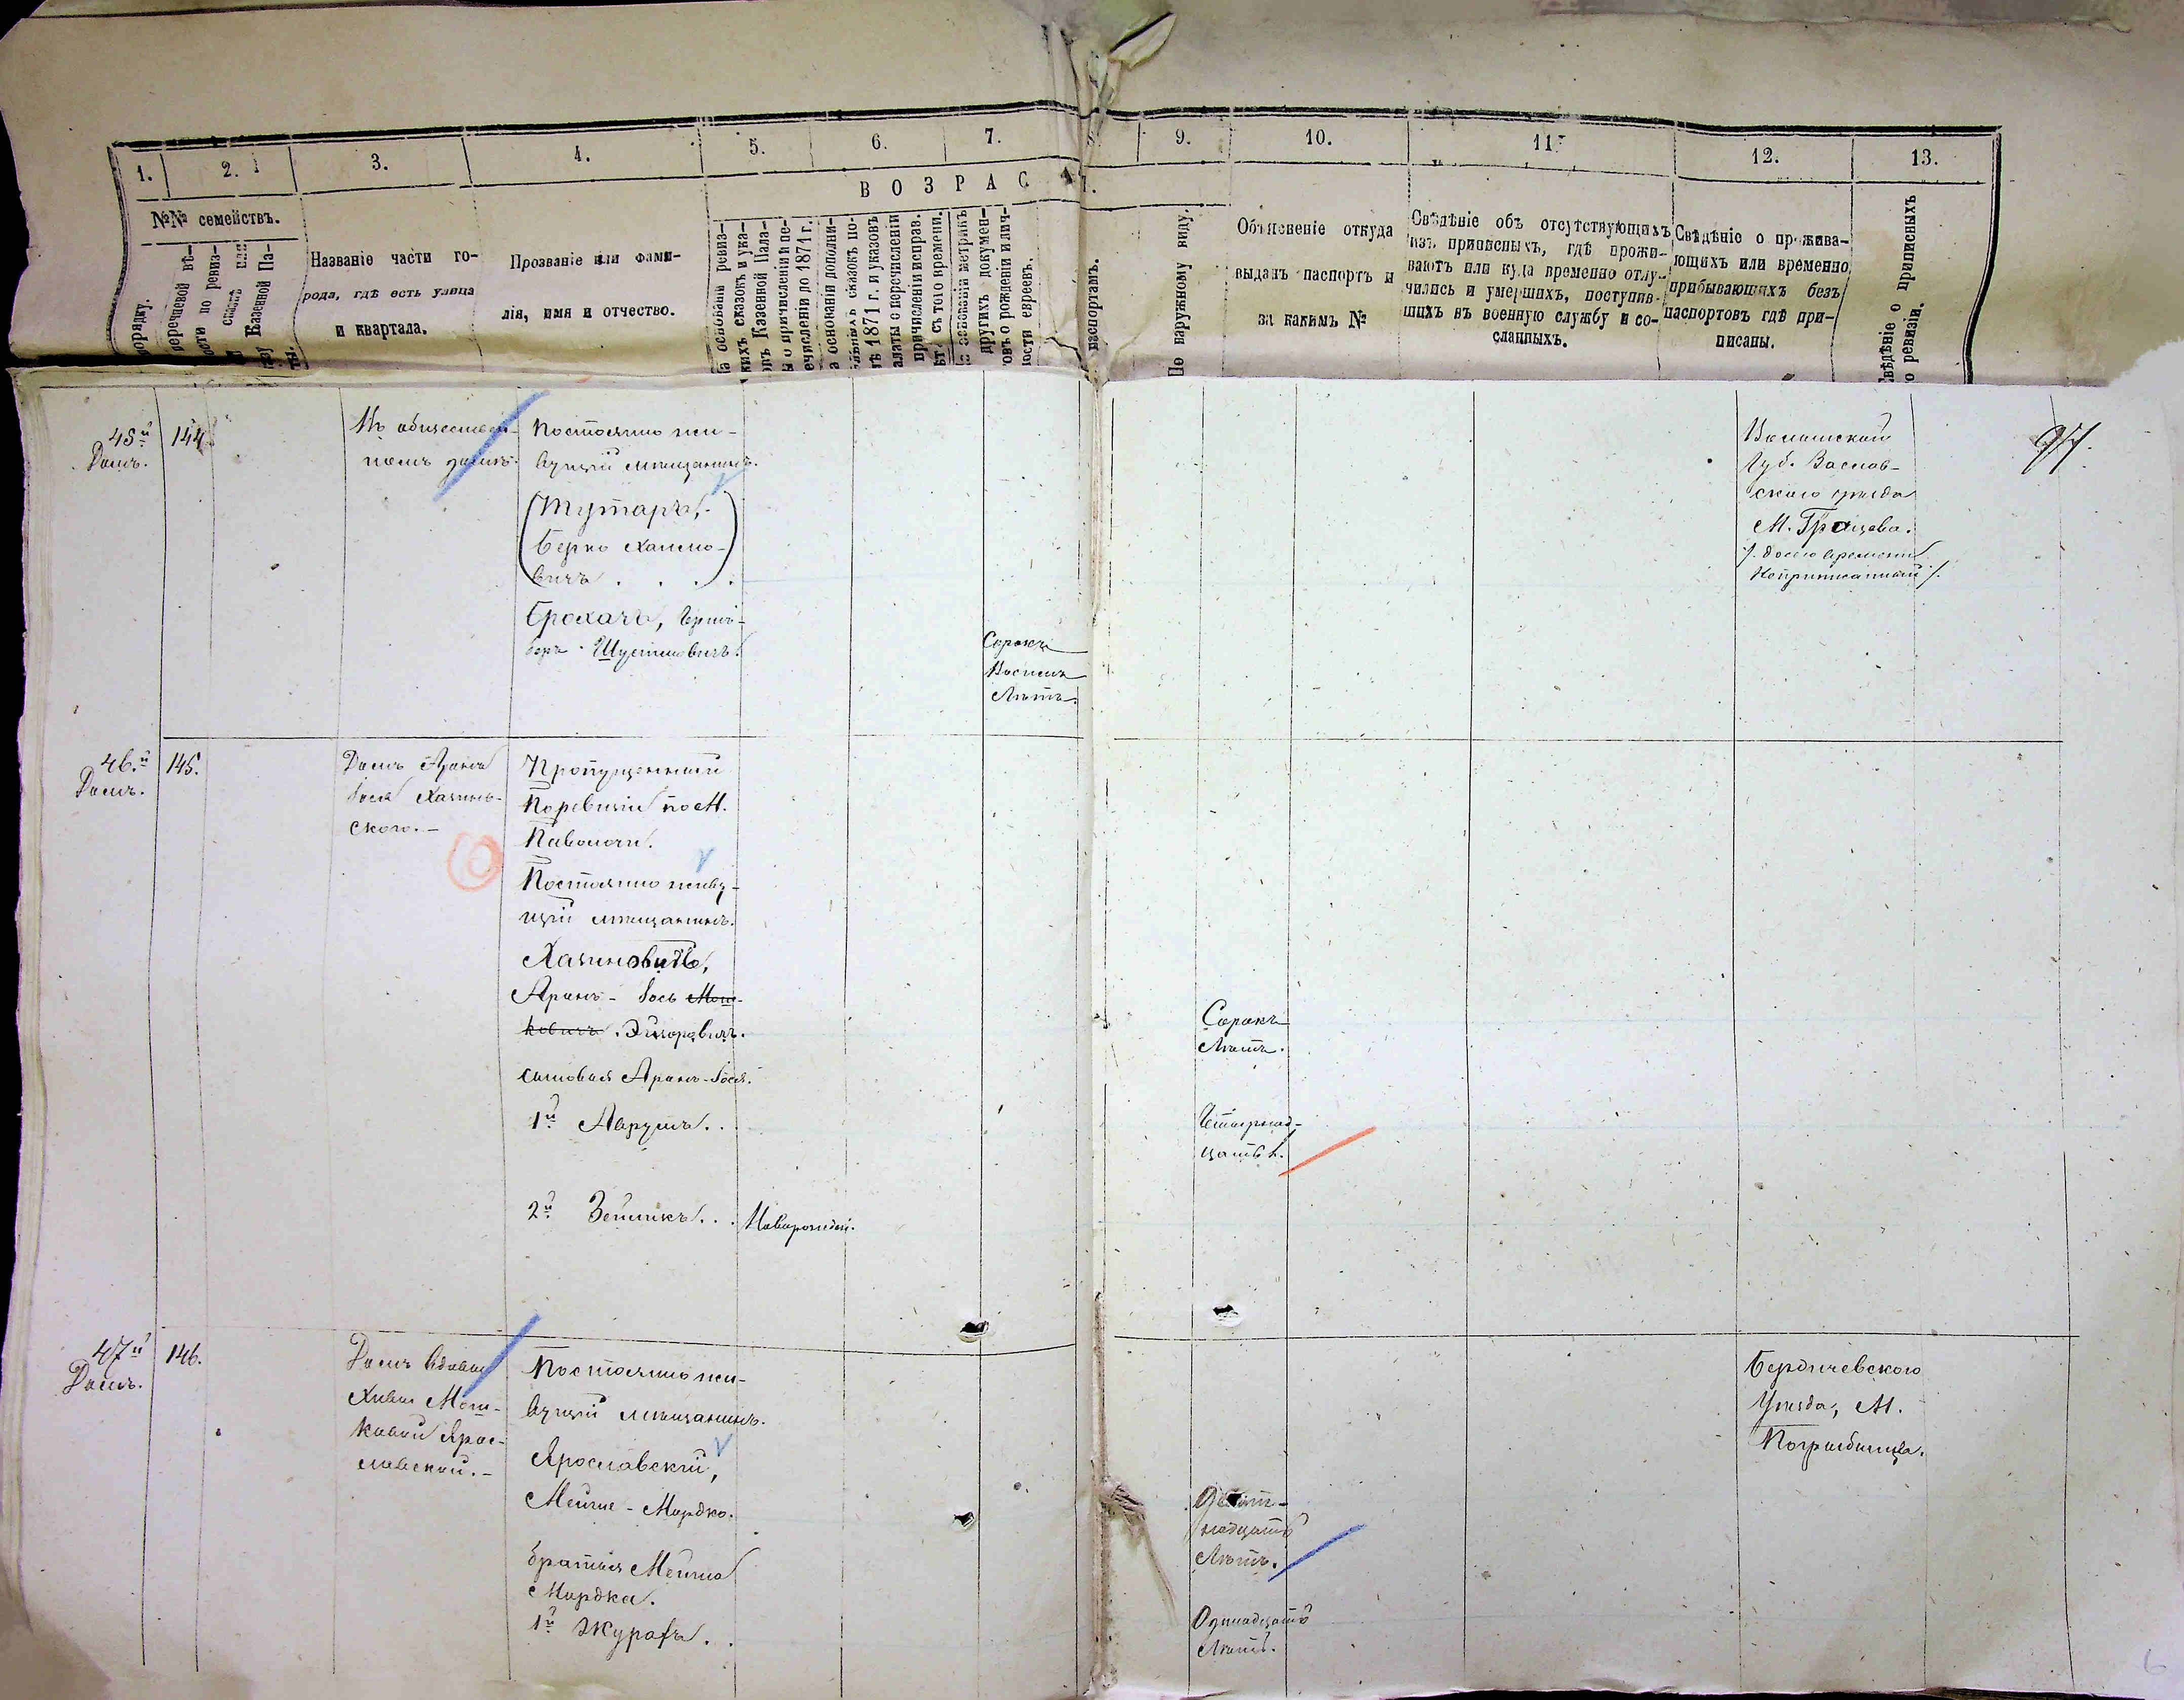 1.
2.
3.
4.
5.
6.
7.
8.
9.
10.
11.
12.
13.
ВОЗРАСТ.
№№ семействъ.
порядку.
перечневой вѣ-
ости по ревиз-
Казенной Па-
Названіе части го-
рода, гдѣ есть улица
и квартала.
Прозваніе или фами-
лія, имя и отчество.
На основаніи ревиз-
скихъ сказокъ и ука-
овъ Казенной Пала-
ы о причисленіи и пе-
ечисленіи до 1871 г.
а основаніи дополни-
сказокъ по-
ѣ 1871 г. и указовъ
алаты о перечисленіи
причисленіи исправ.
съ того времени.
основаніи метрикъ
другихъ докумен-
овъ о рожденіи и лич-
ности евреевъ.
паспортамъ.
По наружному виду.
Объясненіе откуда
выданъ паспортъ и
за какимъ №
Свѣдѣніе объ отсутствующихъ
изъ приписныхъ, гдѣ прожи-
ваютъ или куда временно отлу-
чились и умершихъ, поступив-
шихъ въ военную службу и со-
сланныхъ.
Свѣдѣніе о прожива-
ющихъ или временно
прибывающихъ безъ
паспортовъ гдѣ при-
писаны.
Свѣдѣніе о приписныхъ
о ревизіи.
45й
Домъ.
144
Въ обществен-
номъ домѣ.
Постоянно жи-
вущій мѣщанинъ.
(Тутаръ,
Берко Хаимо-
вичъ . . .)
Брохачъ, Герш-
беръ Шулимовичъ.
Сорокъ
Восемь
Лѣтъ.
Волынской
Губ. Заслав-
скаго уѣзда
М. Грицева.
/. досего времени
Неприписанный /.
97.
46.й
Домъ.
145.
Домъ Аронъ
Іося Хазинов-
ского.-
Пропущенный
Поревизіи по М.
Паволочи.
Постоянно живу-
щій мѣщанинъ.
Хазиновичъ,
Аронъ - Іось Мош-
ковичъ. Эйзоровичъ.
Сорокъ
Лѣтъ.
сыновья Аронъ-Іося.
1й Аврумъ. .
Четырнад-
цать л.
2й Зейликъ. . .
Новорожден.
47й
Домъ.
146.
Домъ вдовы
Хивы Мош-
ковой Ярос-
лавской.-
Постоянно жи-
вущій мѣщанинъ.
Ярославскій,
Мейше - Мордко.
надцать
Лѣтъ.
Бердичевского
Уѣзда, М.
Погребища.
братья Мейше
Мордка.
1й
Одинадцать
Лѣтъ.
6